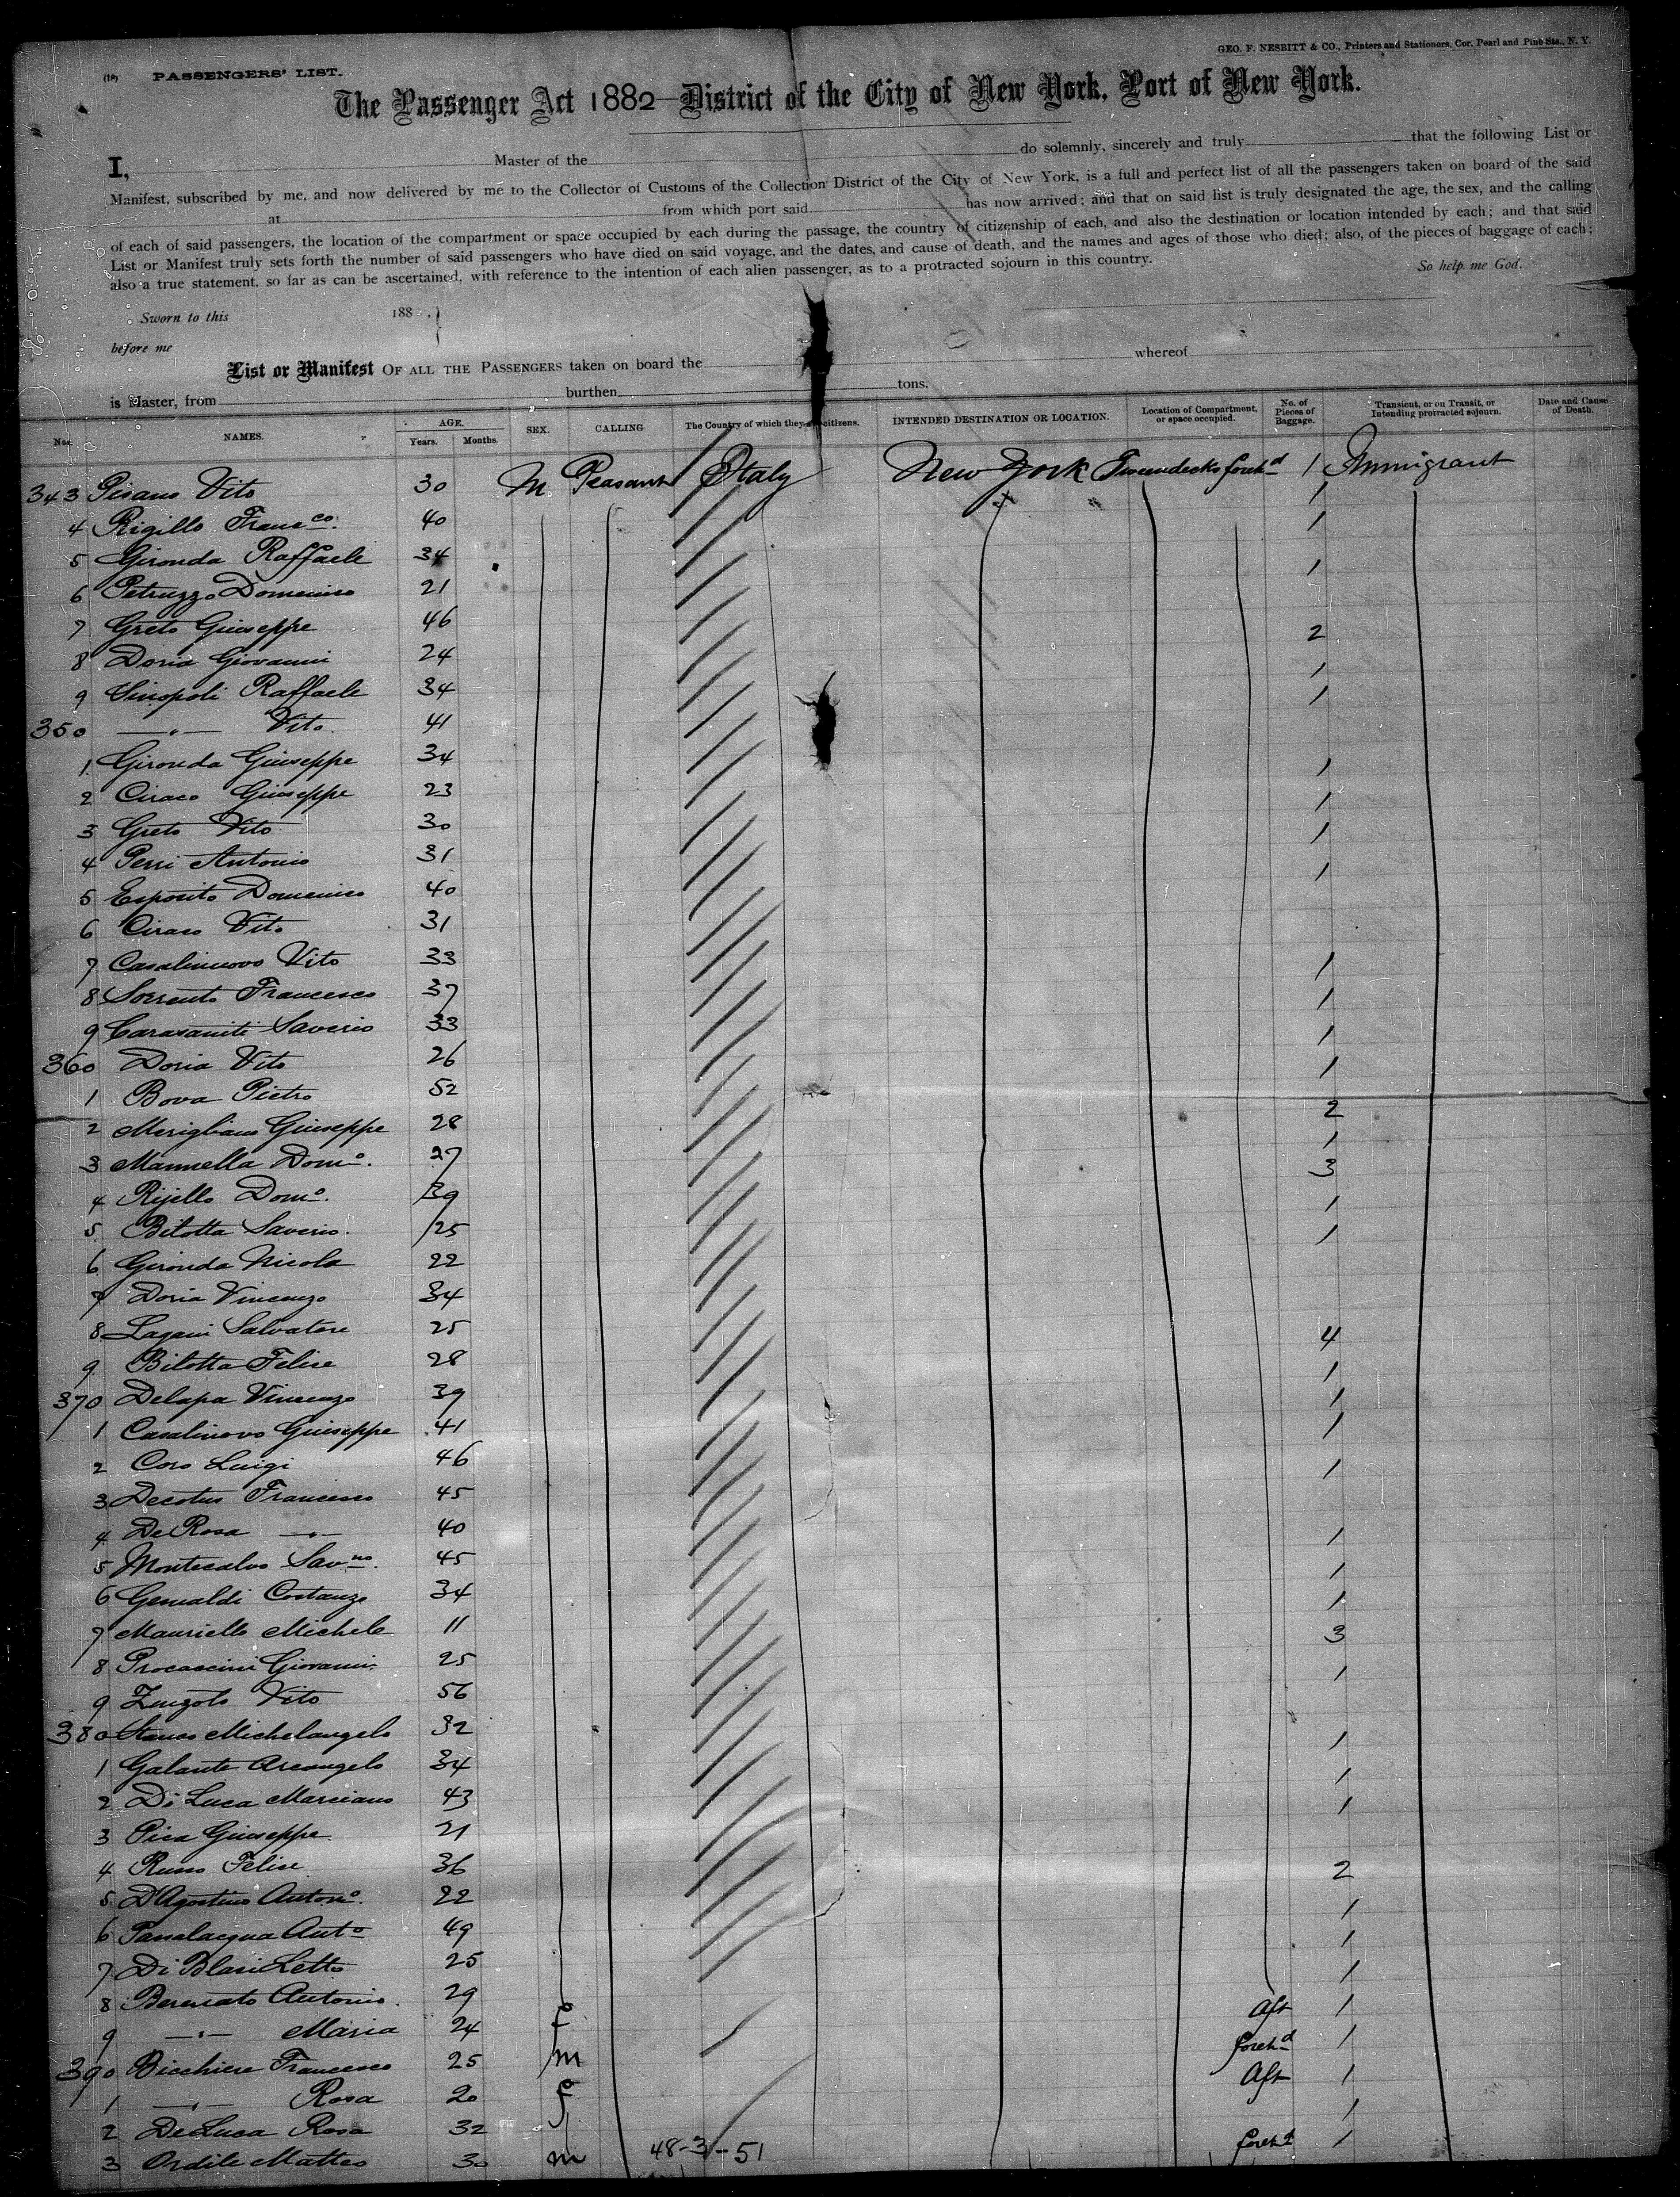 GEO. F. NESBITT & CO., Printers and Stationers, Cor. Pearl and Pine Sts., N. Y.
(18) PASSENGERS' LIST.
The Passenger Act 1882—District of the City of New York, Port of New York.
I, Master of the do solemnly, sincerely and truly that the following List or
Manifest, subscribed by me, and now delivered by me to the Collector of Customs of the Collection District of the City of New York, is a full and perfect list of all the passengers taken on board of the said
at from which port said has now arrived; and that on said list is truly designated the age, the sex, and the calling
of each of said passengers, the location of the compartment or space occupied by each during the passage, the country of citizenship of each, and also the destination or location intended by each; and that said
List or Manifest truly sets forth the number of said passengers who have died on said voyage, and the dates, and cause of death, and the names and ages of those who died; also, of the pieces of baggage of each;
also a true statement, so far as can be ascertained, with reference to the intention of each alien passenger, as to a protracted sojourn in this country. So help me God.
Sworn to this 188 .
before me
List or Manifest OF ALL THE PASSENGERS taken on board the whereof
is Master, from burthen tons.
Nos. NAMES. AGE. Years. Months. SEX. CALLING The Country of which they are citizens. INTENDED DESTINATION OR LOCATION. Location of Compartment, or space occupied. No. of Pieces of Baggage. Transient, or on Transit, or Intending protracted sojourn. Date and Cause of Death.
343 Pisano Vito 30 M Peasant Italy New York Tweendecks foreh^d 1 Immigrant
4 Rigillo Franc^co. 40 1
5 Gironda Raffaele 34 1
6 Petruzzo Domenico 21 1
7 Greto Giuseppe 46
8 Doria Giovanni 24 2
9 Sinopoli Raffaele 34 1
350 —"— Vito 41 1
1 Gironda Giuseppe 34
2 Ciraco Giuseppe 23 1
3 Greto Vito 30 1
4 Perri Antonio 31 1
5 Esposito Domenico 40 1
6 Ciraco Vito 31
7 Casalinuovo Vito 33
8 Sorrento Francesco 37 1
9 Carasaniti Saverio 33 1
360 Doria Vito 26 1
1 Bova Pietro 52 1
2 Merigliano Giuseppe 28 2
3 Mannella Dom^o. 27 1
4 Rijello Dom^o. 39 3
5 Bilotta Saverio. 25 1
6 Gironda Nicola 22 1
7 Doria Vincenzo 34
8 Lageni Salvatore 25
9 Bilotta Felice 28 4
370 Delapa Vincenzo 39 1
1 Casalinovo Giuseppe 41 1
2 Coro Luigi 46 1
3 Francesco 45 1
4 De Rosa —"— 40
5 Montecalvo Sav^no. 45 1
6 Gesualdi Costanzo 34 1
7 Mauriello Michele 11 1
8 Procaccini Giovanni 25 3
9 Zingolo Vito 56 1
380 Michelangelo 32
1 Galante Arcangelo 34 1
2 Di Luca Marciano 43 1
3 Pica Giuseppe 21 1
4 Russo Felice 36
5 D'Agostino Anton^o. 22 2
6 Passalacqua Ant^o 49 1
7 Di Blasi Letto 25 1
8 Berencato Antonio. 29 1
9 —"— Maria 24 f Aft 1
390 Bicchiere Francesco 25 m foreh^d 1
1 —"— Rosa 20 f Aft 1
2 De Luca Rosa 32 1
3 Ordile Matteo 30 m 48-3-51 foreh^d 1